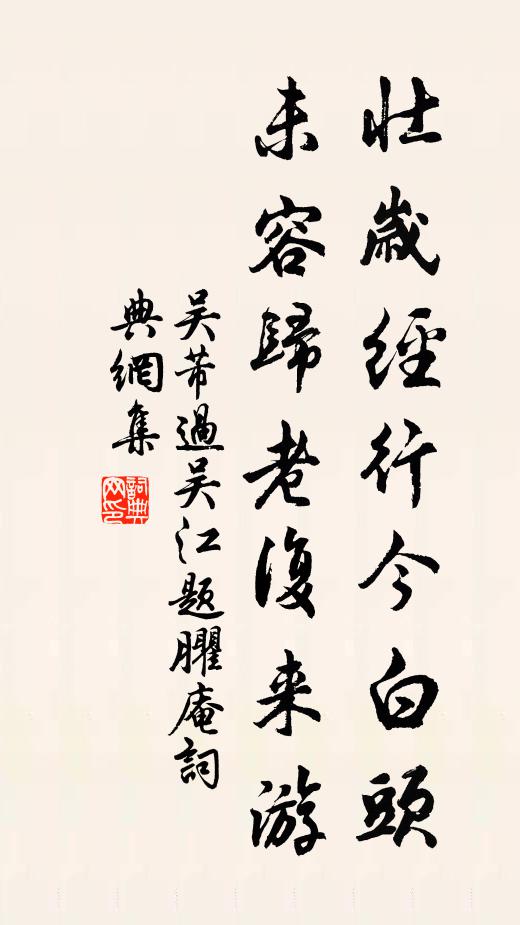 壯歲經行今白頭
未容歸老復来游
吴芾過吴江題臞庵詞
典網集
詞典
网印